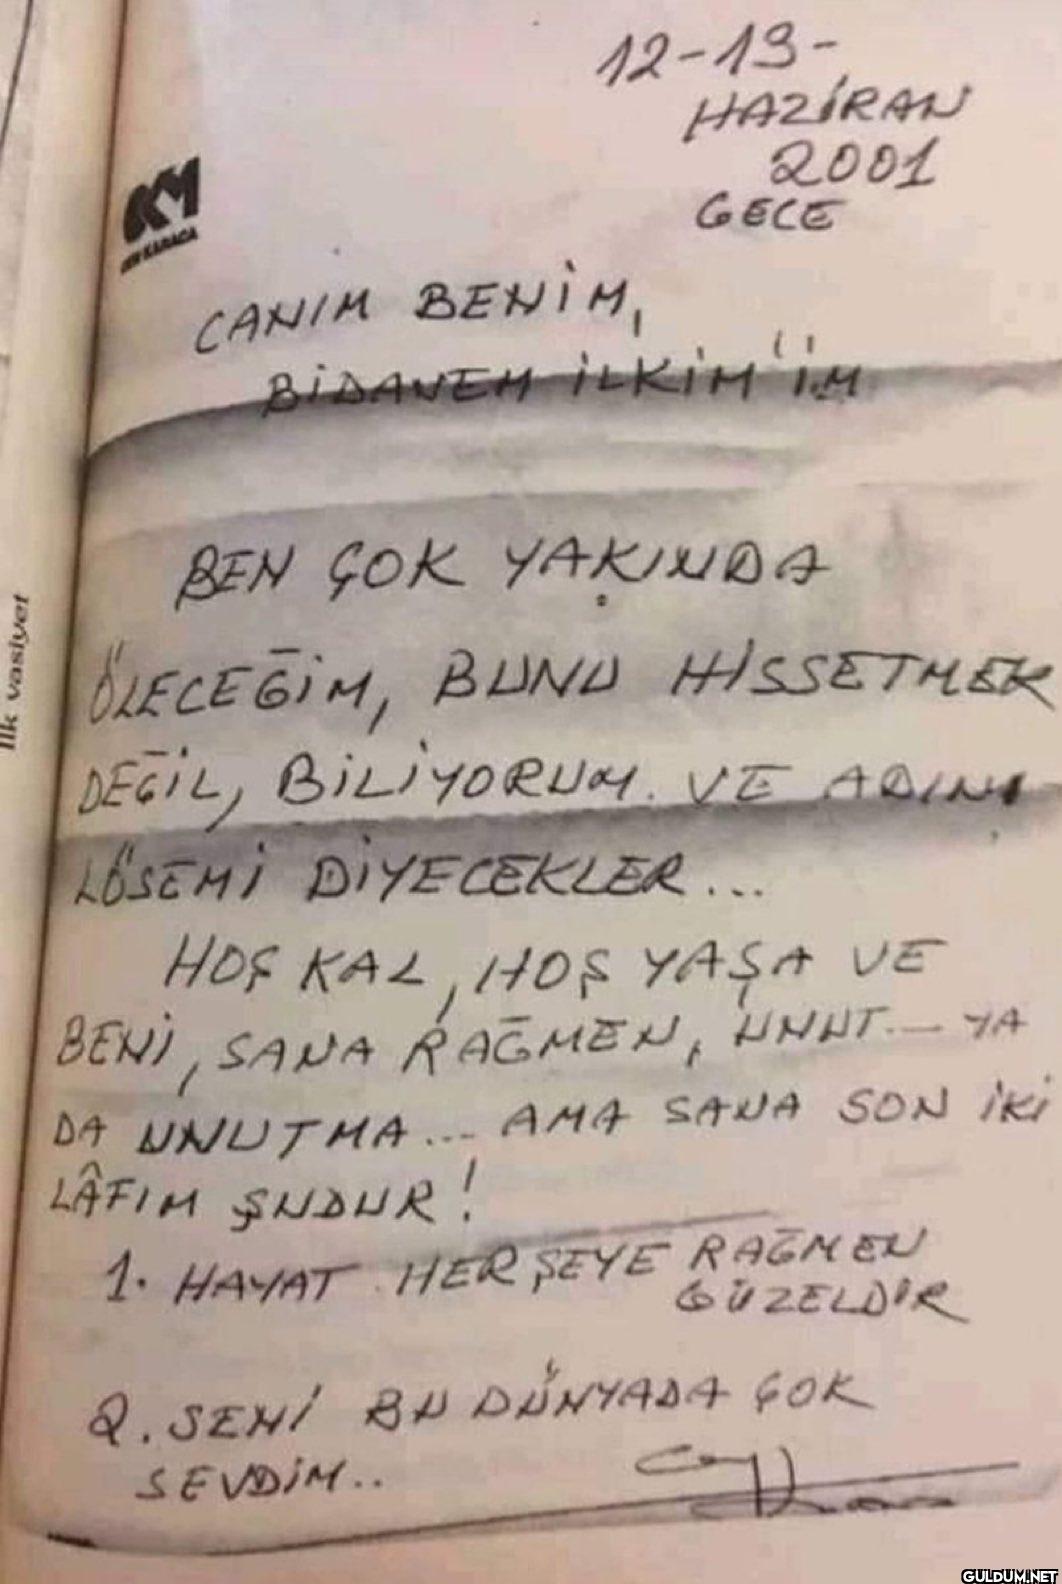 12-13-
HAZİRAN
2001
GECE
CEM KARACA
CANIM BENİM,
BİDANEM İLKİM'İM
BEN ÇOK YAKINDA
ÖLECEĞİM, BUNU HİSSETMEK
DEĞİL, BİLİYORUM. VE ADINI
LÖSEMİ DİYECEKLER...
HOŞ KAL, HOŞ YAŞA VE
BENİ, SANA RAĞMEN, UNUT... YA
DA UNUTMA... AMA SANA SON İKİ
LÂFIM ŞUDUR!
1. HAYAT HERŞEYE RAĞMEN
GÜZELDİR
2. SENİ BU DÜNYADA ÇOK
SEVDİM..
İlk vasiyet
GULDUM.NET